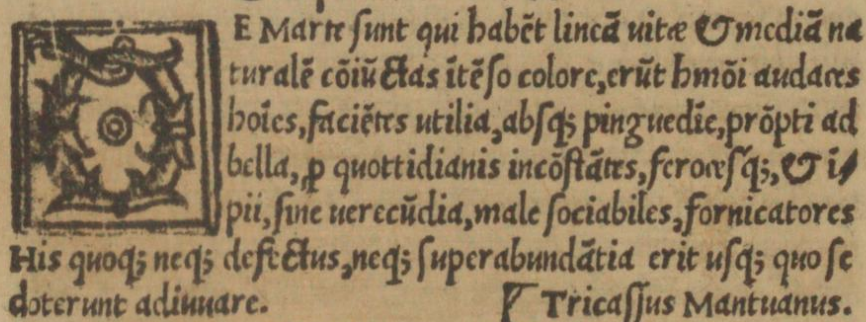 DE Marte sunt qui habēt lineā uitæ & mediā na
turalē cōiūctas ītēso colore, erūt hmōi audaces
hoīes, faciētes utilia, absq; pinguedīe, prōpti ad
bella, ꝑ quottidianis incōstātes, feroces q̃;, & ī⸗
pii, sine uerecūdia, male sociabiles, fornicatores
His quoq; neq; defectus, neq; superabundātia erit usq; quo se
doterunt adiuuare. Tricassus Mantuanus.